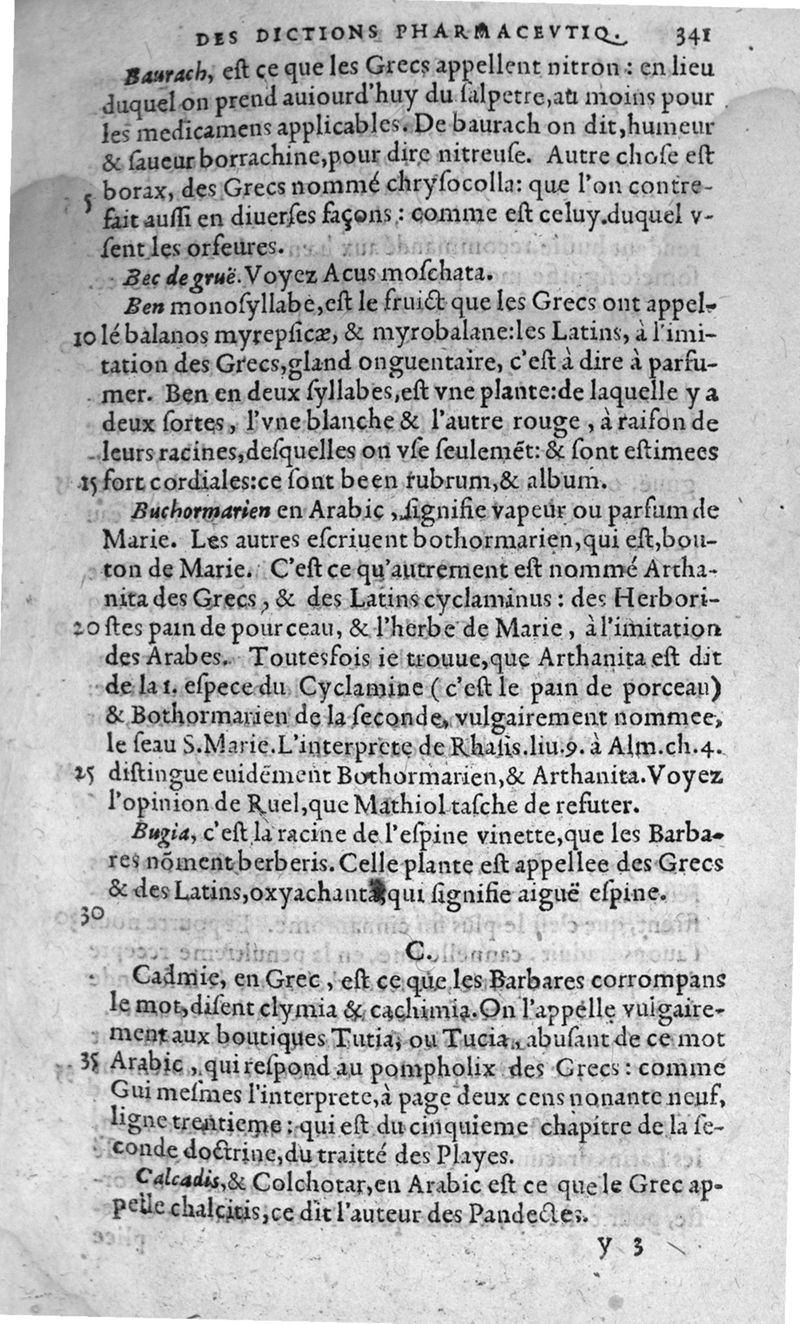 DES DICTIONS PHARMACEVTIQ. 341
Baurach, eſt ce que les Grecs appellent nitron : en lieu
duquel on prend auiourd'huy du ſalpetre, au moins pour
les medicamens applicables. De baurach on dit, humeur
& ſaueur borrachine, pour dire nitreuſe. Autre choſe eſt
5 borax, des Grecs nommé chryſocolla: que l'on contre-
fait auſſi en diuerſes façons : comme eſt celuy.duquel v-
ſent les orfeures.
Bec de gruë. Voyez Acus moſchata.
Ben monoſyllabe, eſt le fruict que les Grecs ont appel-
10 lé balanos myrepſicæ, & myrobalane: les Latins, à l'imi-
tation des Grecs, gland onguentaire, c'eſt à dire à parfu-
mer. Ben en deux ſyllabes, eſt vne plante: de laquelle y a
deux ſortes, l'vne blanche & l'autre rouge, à raiſon de
leurs racines, deſquelles on vſe ſeulemẽt: & ſont eſtimees
15 fort cordiales: ce ſont been rubrum, & album.
Buchormarien en Arabic, ſignifie vapeur ou parfum de
Marie. Les autres eſcriuent bothormarien, qui eſt, bou-
ton de Marie. C'eſt ce qu'autrement eſt nommé Artha-
nita des Grecs, & des Latins cyclaminus : des Herbori-
20 ſtes pain de pourceau, & l'herbe de Marie, à l'imitation
des Arabes. Toutesfois ie trouue, que Arthanita eſt dit
de la 1. eſpece du Cyclamine (c'eſt le pain de porceau)
& Bothormarien de la ſeconde, vulgairement nommee,
le ſeau S. Marie. L'interprete de Rhaſis. liu. 9. à Alm. ch. 4.
25 diſtingue euidẽment Bothormarien, & Arthanita. Voyez
l'opinion de Ruel, que Mathiol taſche de refuter.
Bugia, c'eſt la racine de l'eſpine vinette, que les Barba-
res nõment berberis. Celle plante eſt appellee des Grecs
& des Latins, oxyachanta, qui ſignifie aiguë eſpine.
30
C.
Cadmie, en Grec, eſt ce que les Barbares corrompans
le mot, diſent clymia & cachimia. On l'appelle vulgaire-
ment aux boutiques Tutia, ou Tucia, abuſant de ce mot
35 Arabic, qui reſpond au pompholix des Grecs : comme
Gui meſmes l'interprete, à page deux cens nonante neuf,
ligne trentieme : qui eſt du cinquieme chapitre de la ſe-
conde doctrine, du traitté des Playes.
Calcadis, & Colchotar, en Arabic eſt ce que le Grec ap-
pelle chalcitis, ce dit l'auteur des Pandectes.
y 3